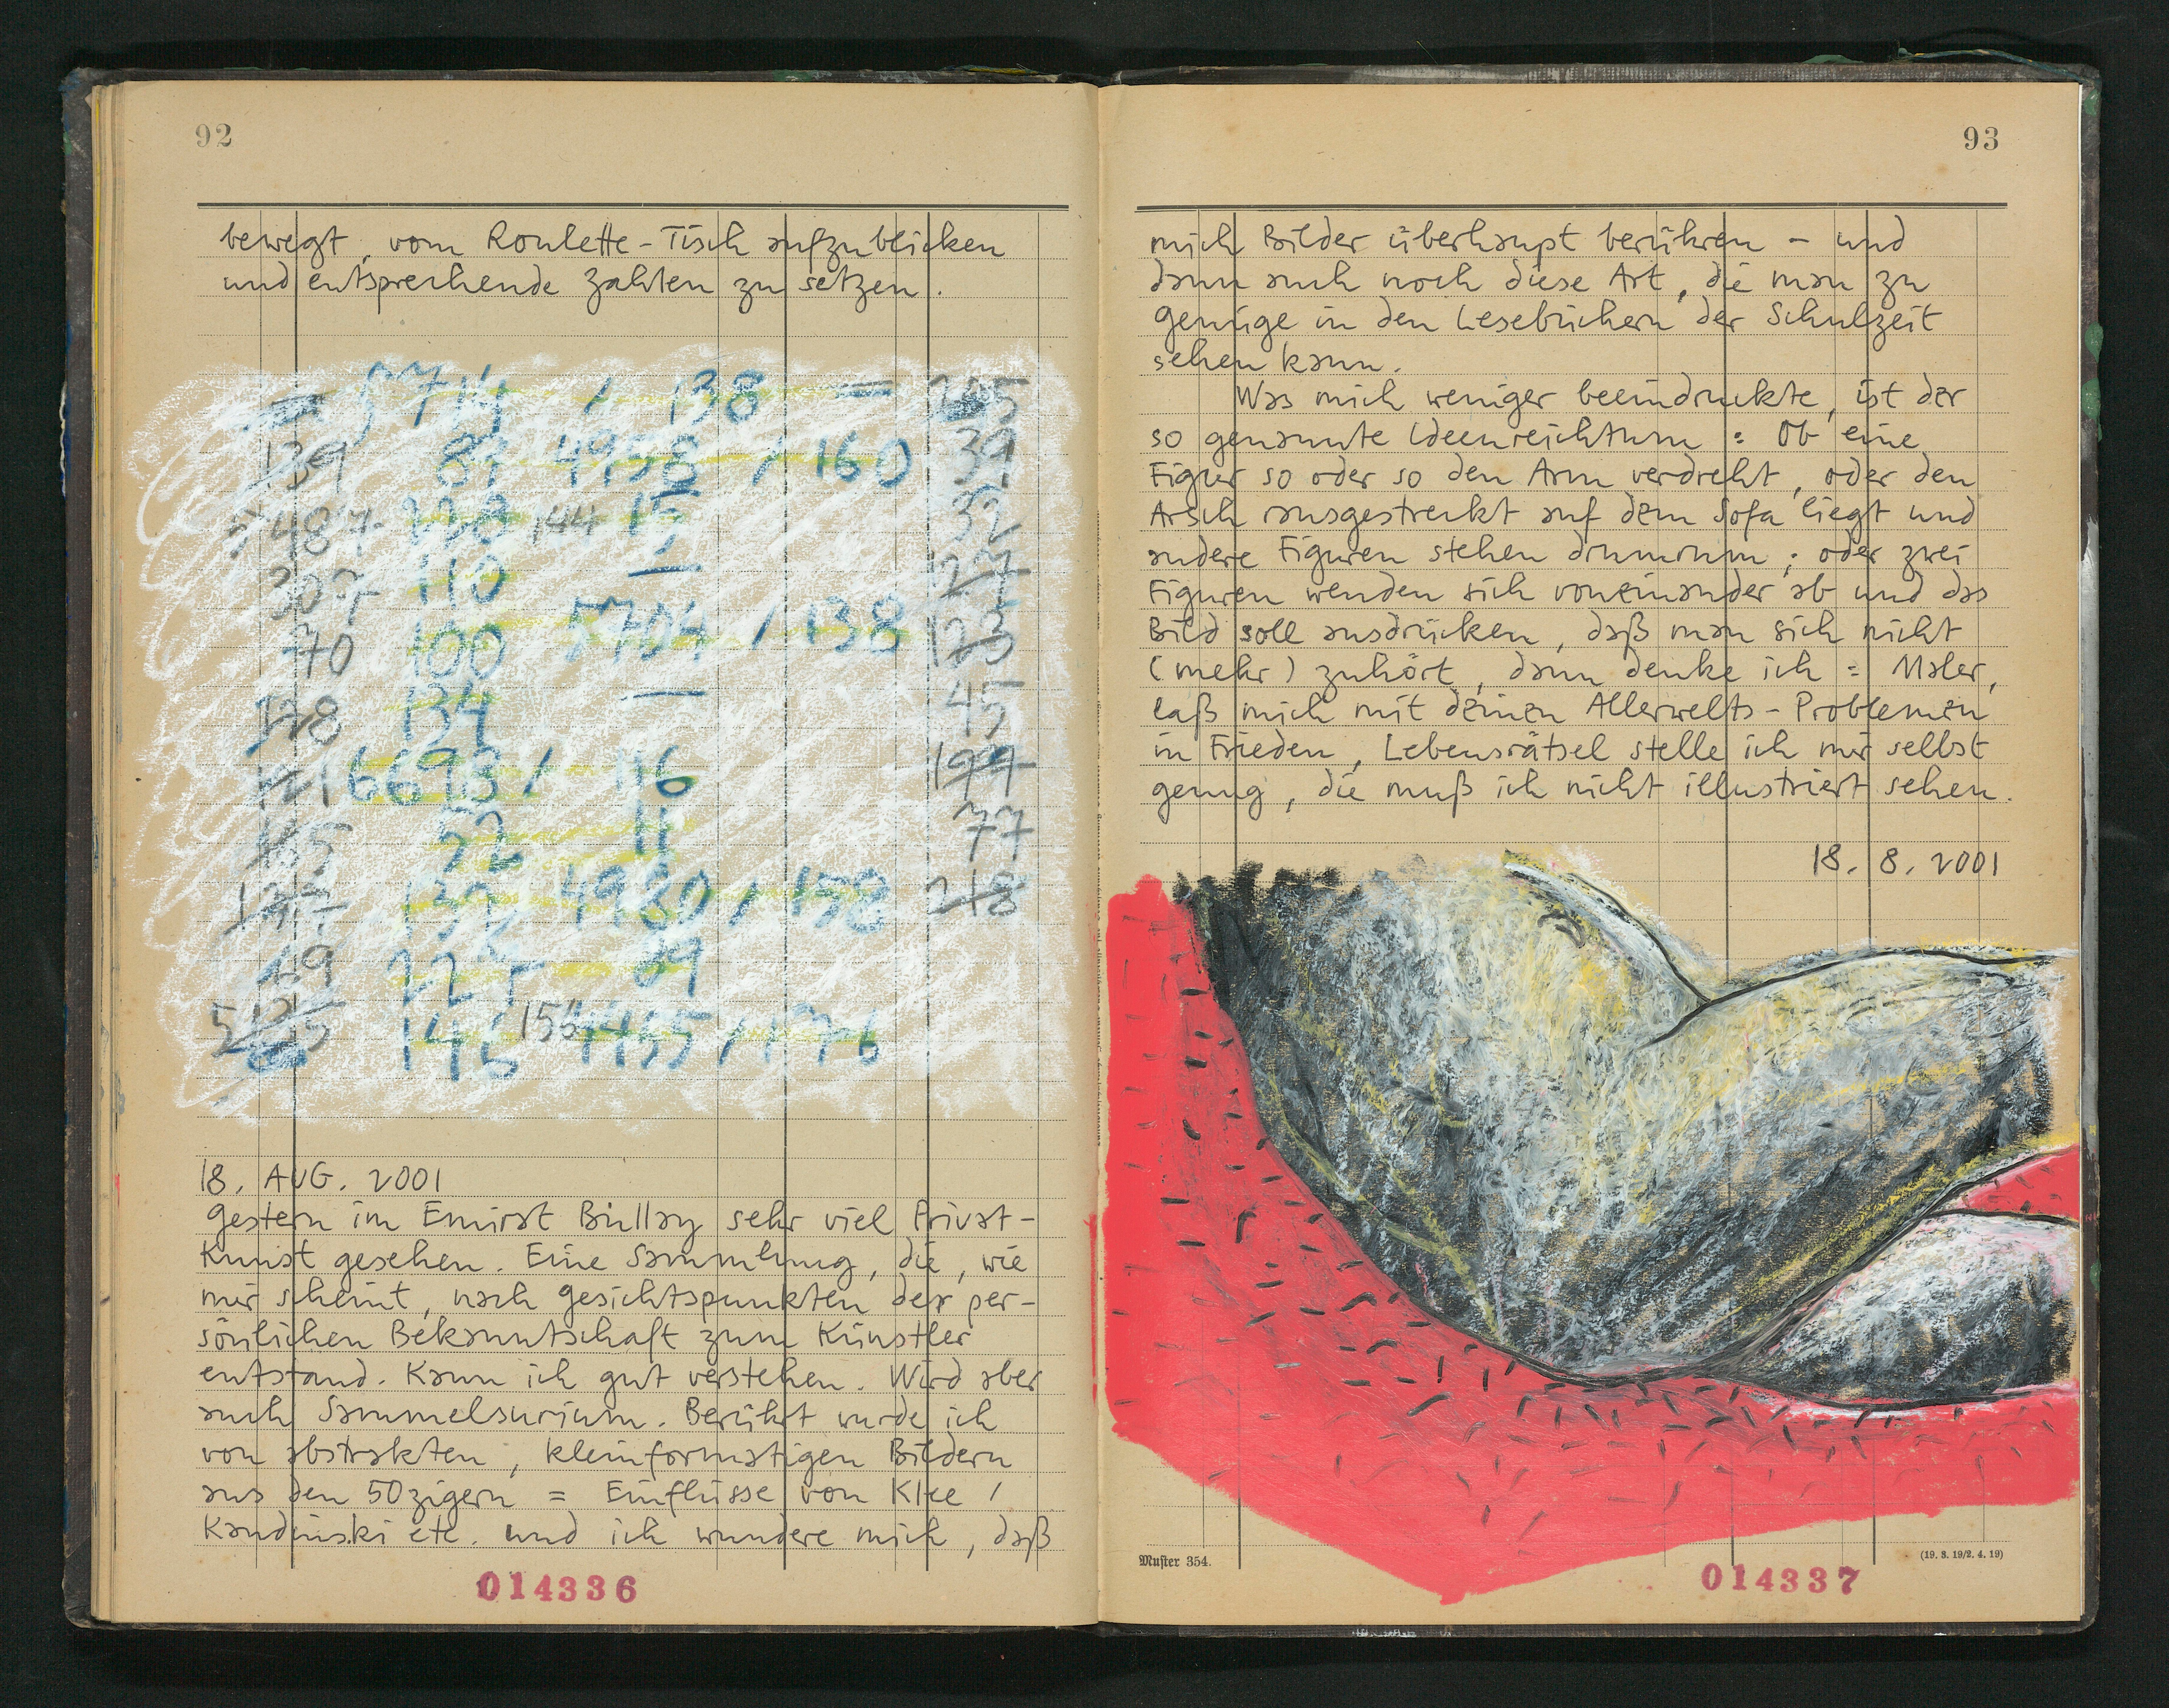 92
bewegt, vom Roulette-Tisch aufzublicken
und entsprechende Zahlen zu setzen.
5714 / 138 =
139 83 4958 / 160 39
5487 144 15 32
307 110 127
70 100 5704 / 138 123
128 134 45
121 6693 / 116 199
52 11 77
4980 / 158 218
69
146 154 4455 / 176
18. AUG. 2001
Gestern im Emirat Büllay sehr viel Privat-
Kunst gesehen. Eine Sammlung, die, wie
mir scheint, nach Gesichtspunkten der per-
sönlichen Bekanntschaft zum Künstler
entstand. Kann ich gut verstehen. Wird aber
auch Sammelsurium. Berührt wurde ich
von abstrakten, kleinformatigen Bildern
aus den 50zigern = Einflüsse von Klee /
Kandinski etc. und ich wundere mich, daß
014336
93
mich Bilder überhaupt berühren - und
dann auch noch diese Art, die man zu
genüge in den Lesebüchern der Schulzeit
sehen kann.
Was mich weniger beeindruckte, ist der
so genannte Ideenreichtum : Ob eine
Figur so oder so den Arm verdreht, oder den
Arsch rausgestreckt auf dem Sofa liegt und
andere Figuren stehen drumrum ; oder zwei
Figuren wenden sich voneinander ab und das
Bild soll ausdrücken, daß man sich nicht
(mehr) zuhört, dann denke ich = Maler,
laß mich mit deinen Allerwelts-Problemen
in Frieden, Lebensrätsel stelle ich mir selbst
genug, die muß ich nicht illustriert sehen.
18. 8. 2001
Muster 354.
(19. 3. 19/2. 4. 19)
014337